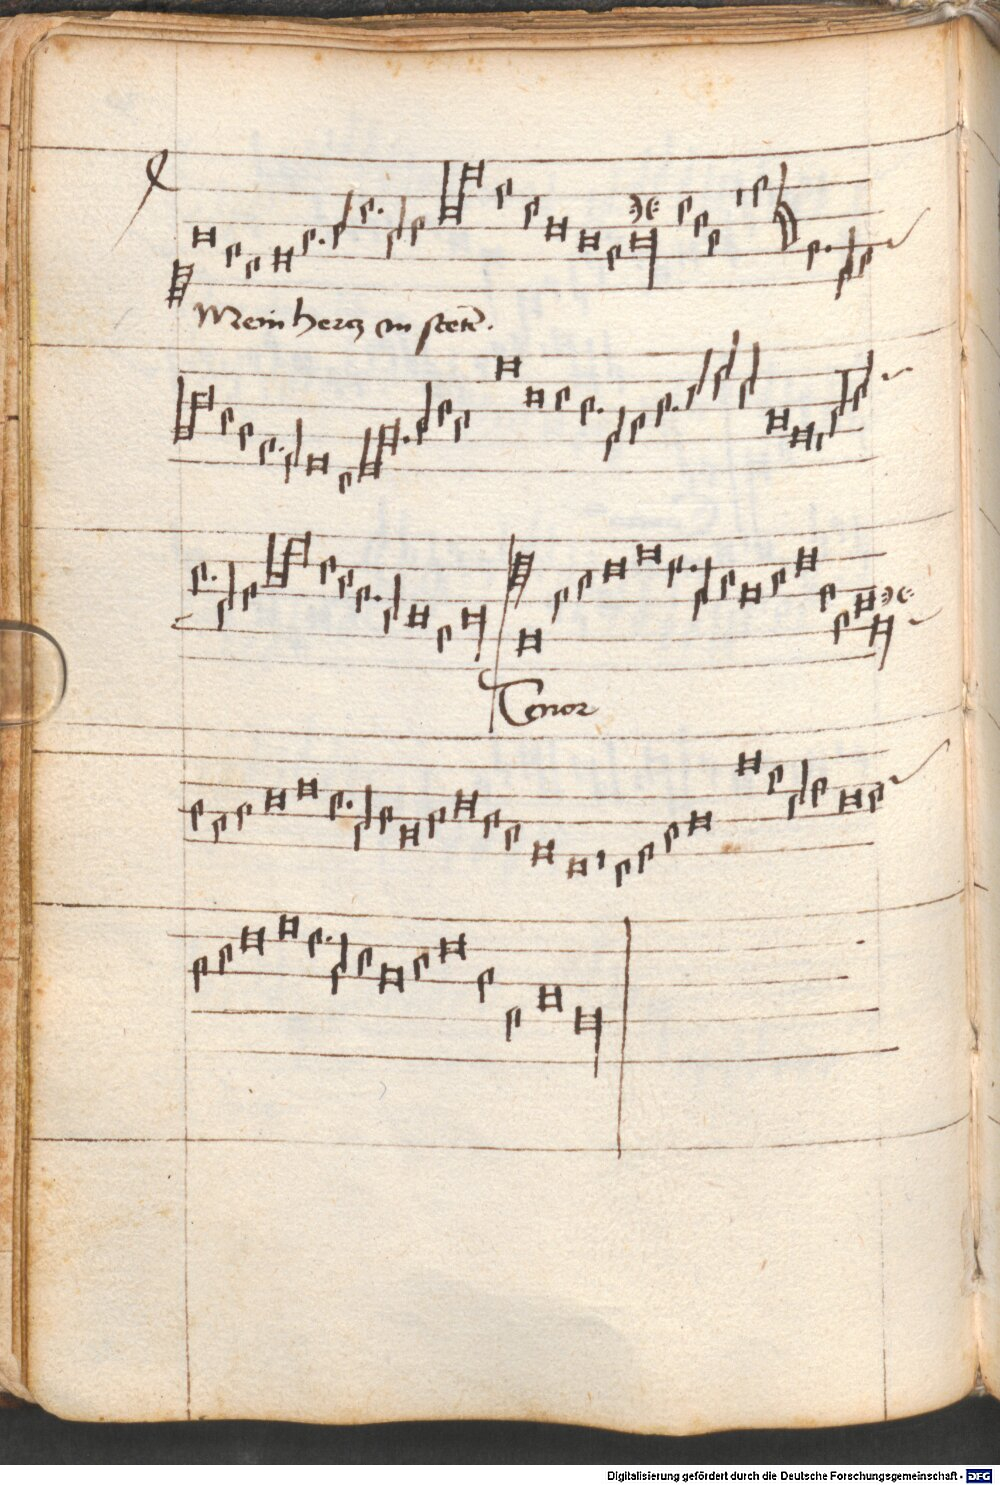 Mein hertz in stetē.
Tenor
Digitalisierung gefördert durch die Deutsche Forschungsgemeinschaft - DFG